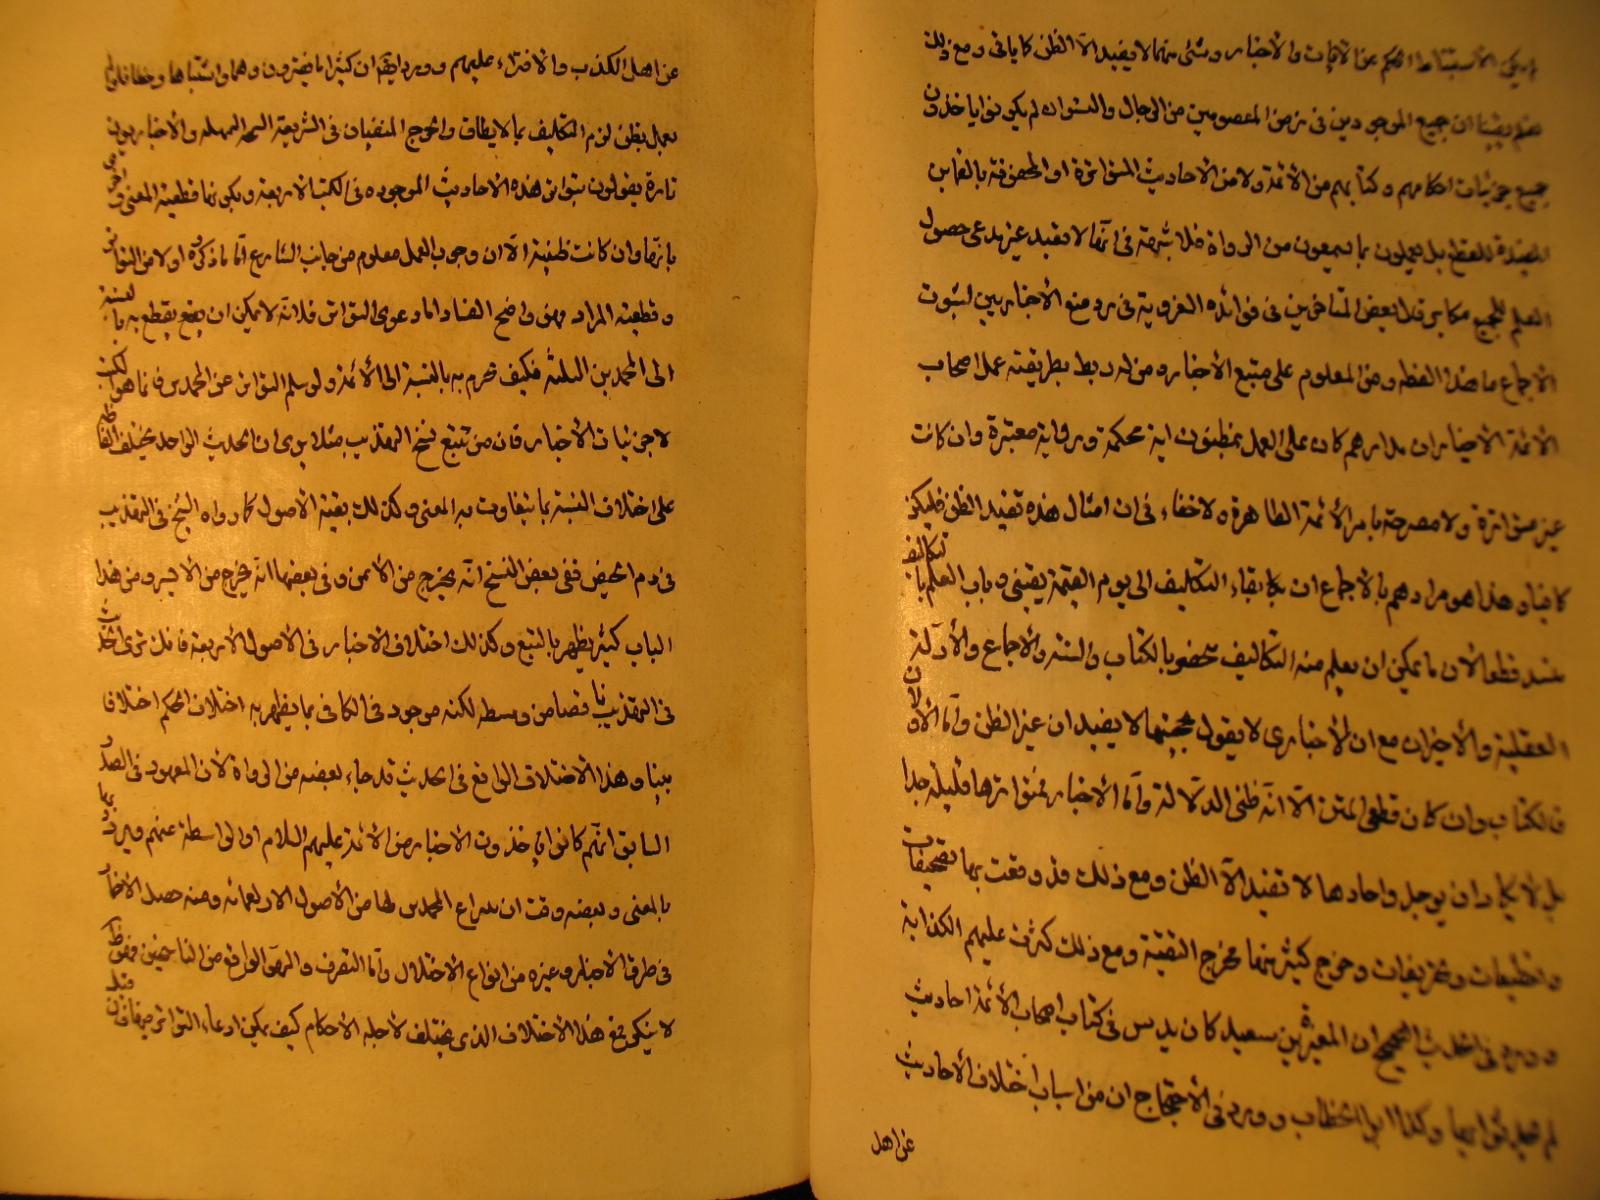 الاستنباط الحكم من الآيات والأخبار وشئ منهما لا يفيد الا الظن كما يأتي ومع ذلك
يقينا ان جميع الموجودين في زمن المعصومين من الرجال والنسوان لم يكونوا ياخذون
جميع جزئيات احكامهم وكتابهم من الأئمة ولا من الأحاديث المتواترة او المحفوفة بالقراين
المفيدة للقطع بل يعملون بما يسمعون من الرواة فلا شبهة في انها لا يفيد غير مدعى حصول
العلم للجميع مكابر قال بعض المتاخرين في فوائده الغروية في رد منع الأخباريين لثبوت
الاجماع ما هذا لفظه ومن المعلوم على متتبع الأخبار ومن له ربط بطريقة عمل اصحاب
الأئمة الاخيار ان مدارهم كان على العمل بمظنون اية محكمة ورواية معتبرة وان كانت
غير متواترة ولا مصرحة بامر الأئمة الطاهرة ولا خفاء في ان امثال هذه تفيد الظن فليكن
هذا هو مرادهم بالاجماع ان بقاء التكاليف الى يوم القيمة يقيني وباب العلم بالتكاليف
منسد قطعا لان ما يمكن ان يعلم منه التكاليف محصور بالكتاب والسنة والاجماع والأدلة
العقلية والأخيران مع ان الأخباري لا يقول بحجيتهما لا يفيدان غير الظن وأما الأولان
فالكتاب وان كان قطعي المتن الا انه ظني الدلالة وأما الأخبار فمتواترها قليلة جدا
بل لا يكاد ان يوجد واحادها لا تفيد الا الظن ومع ذلك قد وقعت بها تصحيفات
وتحريفات وخرج كثير منها مخرج التقية ومع ذلك كثرت عليهم الكذابة
وورد في الحديث الصحيح ان المغيرة بن سعيد كان يدس في كتاب اصحاب الأئمة احاديث
لم يحدثوا بها وكذا ابو الخطاب وورد في الاحتجاج ان من اسباب اختلاف الأحاديث
من اهل
من اهل الكذب والافتراء عليهم وورد ايضا ان كثيرا ما يغيرون وهما واشتباها وخطا فلو لم
يعمل بظن لزم التكليف بما لا يطاق والحرج المنفيان في الشريعة السمحة السهلة والأخباريون
تارة يقولون بتواتر هذه الأحاديث الموجودة في الكتب الاربعة وبكونها قطعية المعنى واخرى
بانها وان كانت ظنية الا ان وجوب العمل معلوم من جانب الشارع أما ما ذكروه اولا من التواتر
وقطعية المراد فهي واضح الفساد اما دعوى التواتر فلانه لا يمكن ان يقع يقطع به بالنسبة
الى المحمدين الثلثة فكيف تحرم به بالنسبة الى الأئمة ولو سلم التواتر عن المحمدين فانما هو لكتب
لا جزئيات الأخبار فان من تتبع نسخ التهذيب مثلا يرى ان الحديث الواحد يختلف الفاظه
على اختلاف النسبة بما يتفاوت به المعنى وكذلك بقية الأصول كما رواه الشيخ في التهذيب
في دم الحيض ففي بعض النسخ انه يخرج من الأيمن وفي بعضها انه يخرج من الأيسر ومن هذا
الباب كثير يظهر بالتتبع وكذلك اختلاف الاخبار في الأصول الأربعة فانك ترى الحديث
في التهذيب ناقصا من وسطه لكنه موجود في الكافي بما يظهر به اختلاف الحكم اختلافا
بينا وهذا الاختلاف الواقع في الحديث قد جاء بعضه من الرواة لأن المعهود في الصدر
السابق انهم كانوا ياخذون الأخبار من الأئمة عليهم السلام او الواسطة عنهم ويرووها
بالمعنى وبعضه وقت انتزاع المحمدين لها من الأصول الاربعمائة ومنه حصل الاختلاف
في طرق الأخبار وغيره من انواع الاختلال وأما التصرف والسهو الواقع من الناسخين فهو ظاهر
لا ينكر فمع هذا الاختلاف الذي يختلف لأجله الأحكام كيف يمكن ادعاء التواتر فيها